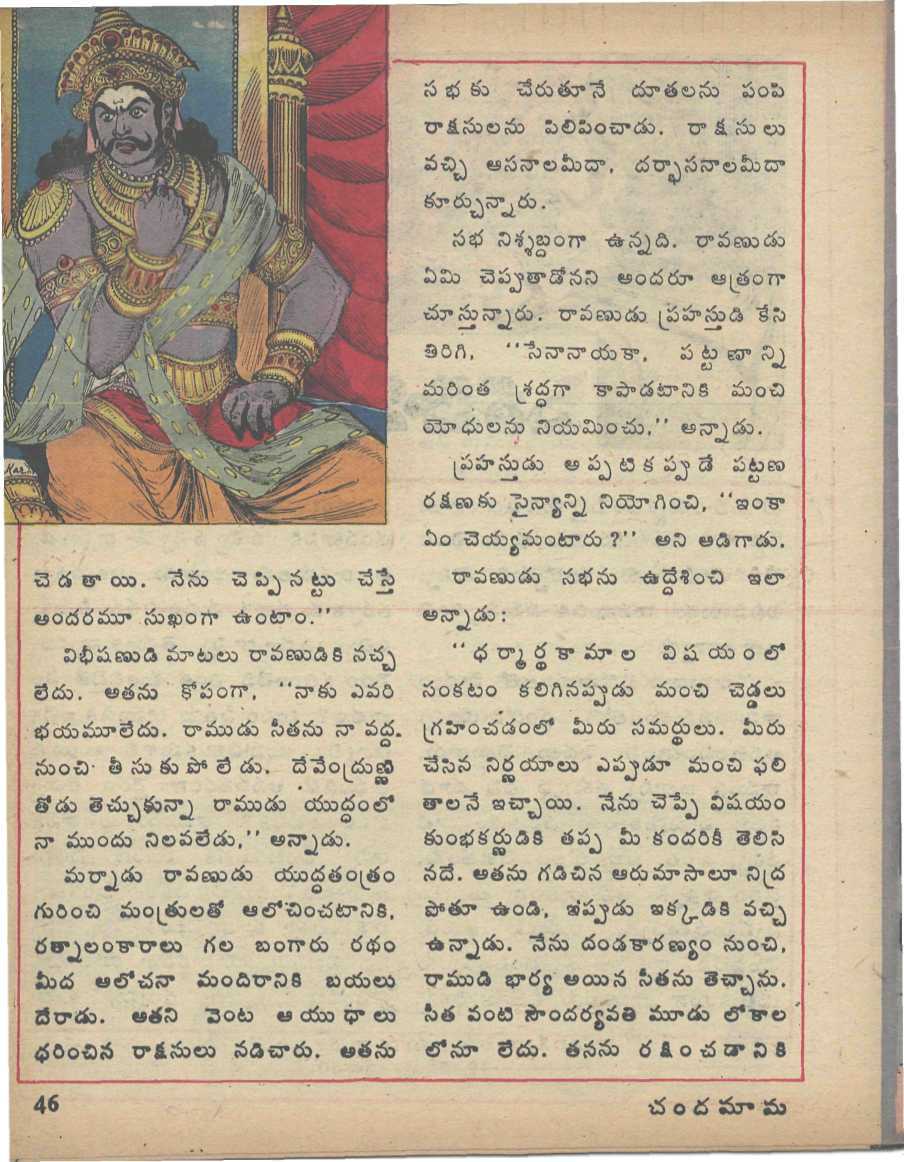 చెడతాయి. నేను చెప్పినట్టు చేస్తే
అందరమూ సుఖంగా ఉంటాం.''
విభీషణుడి మాటలు రావణుడికి నచ్చ
లేదు. అతను కోపంగా, ''నాకు ఎవరి
భయమూలేదు. రాముడు సీతను నా వద్ద
నుంచి తీసుకుపోలేడు. దేవేంద్రుణ్ణి
తోడు తెచ్చుకున్నా రాముడు యుద్ధంలో
నా ముందు నిలవలేడు,'' అన్నాడు.
మర్నాడు రావణుడు యుద్ధతంత్రం
గురించి మంత్రులతో ఆలోచించటానికి,
రత్నాలంకారాలు గల బంగారు రథం
మీద ఆలోచనా మందిరానికి బయలు
దేరాడు. అతని వెంట ఆయుధాలు
ధరించిన రాక్షసులు నడిచారు. అతను
సభకు చేరుతూనే దూతలను పంపి
రాక్షసులను పిలిపించాడు. రాక్షసులు
వచ్చి ఆసనాలమీదా, దర్భాసనాలమీదా
కూర్చున్నారు.
సభ నిశ్శబ్దంగా ఉన్నది. రావణుడు
ఏమి చెప్పుతాడోనని అందరూ ఆత్రంగా
చూస్తున్నారు. రావణుడు ప్రహస్తుడి కేసి
తిరిగి, ''సేనానాయకా, పట్టణాన్ని
మరింత శ్రద్ధగా కాపాడటానికి మంచి
యోధులను నియమించు,'' అన్నాడు.
ప్రహస్తుడు అప్పటికప్పుడే పట్టణ
రక్షణకు సైన్యాన్ని నియోగించి, ''ఇంకా
ఏం చెయ్యమంటారు?'' అని అడిగాడు.
రావణుడు సభను ఉద్దేశించి ఇలా
అన్నాడు:
''ధర్మార్థకామాల విషయంలో
సంకటం కలిగినప్పుడు మంచి చెడ్డలు
గ్రహించడంలో మీరు సమర్థులు. మీరు
చేసిన నిర్ణయాలు ఎప్పుడూ మంచి ఫలి
తాలనే ఇచ్చాయి. నేను చెప్పే విషయం
కుంభకర్ణుడికి తప్ప మీ కందరికీ తెలిసి
నదే. అతను గడిచిన ఆరుమాసాలూ నిద్ర
పోతూ ఉండి, ఇప్పుడు ఇక్కడికి వచ్చి
ఉన్నాడు. నేను దండకారణ్యం నుంచి,
రాముడి భార్య అయిన సీతను తెచ్చాను.
సీత వంటి సౌందర్యవతి మూడు లోకాల
లోనూ లేదు. తనను రక్షించడానికి
46
చందమామ